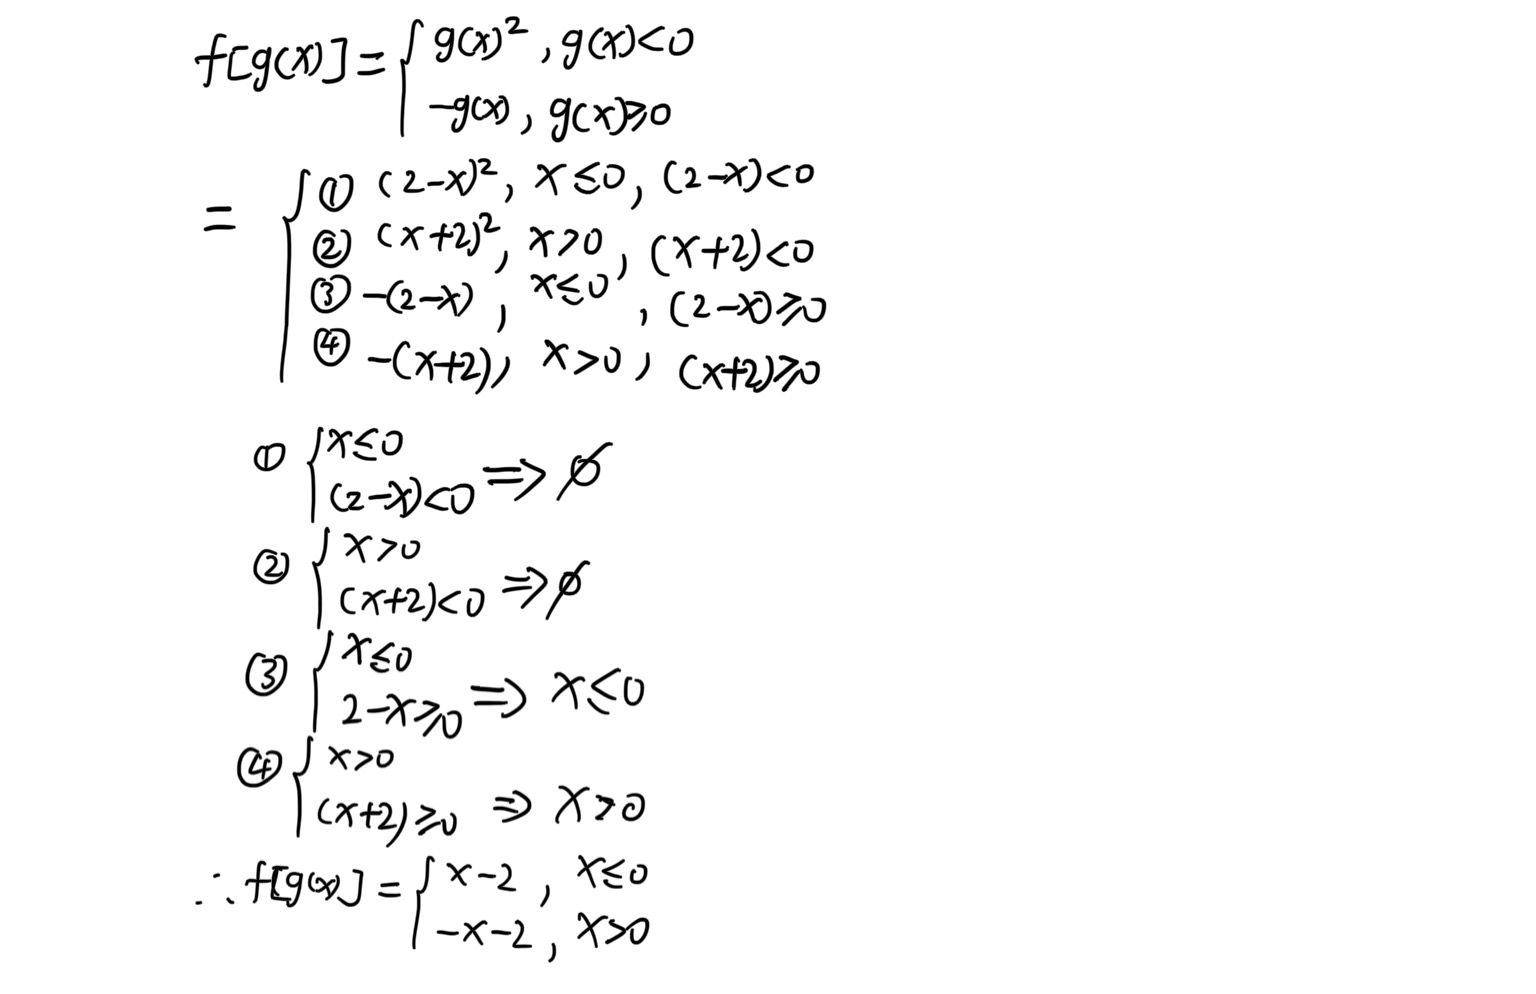 f[g(x)] = { g(x)², g(x)<0
-g(x), g(x)≥0
= { ① (2-x)², x≤0, (2-x)<0
② (x+2)², x>0, (x+2)<0
③ -(2-x), x≤0, (2-x)≥0
④ -(x+2), x>0, (x+2)≥0
① { x≤0
(2-x)<0 ⇒ ∅
② { x>0
(x+2)<0 ⇒ ∅
③ { x≤0
2-x≥0 ⇒ x≤0
④ { x>0
(x+2)≥0 ⇒ x>0
∴ f[g(x)] = { x-2, x≤0
-x-2, x>0